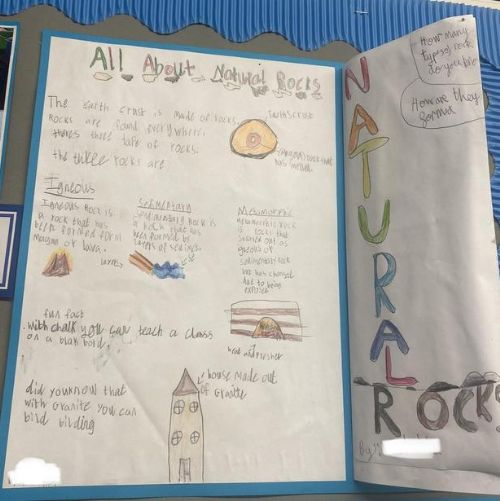 All About Natural Rocks
The earth crust is made of rocks.
Rocks are found everywhere.
theres three tipe of rocks.
the three rocks are
earths crust
(magma) rock that
has melted.
Igneous
Igneous Rock is
a rock that has
been formed form
magma or lava.
Sedimentary
Sedimentary Rock is
a rock that has
been formed by
layers of
layers
Metamorphic
metamorphic rock
is rocks that
started out as
igneous or
sedimentary rock
but has changed
due to being
exposed
heat and
fun fact
with chalk you can teach a class
on a blak bord.
house made out
of Granite
did you know that
with Granite you can
bild bilding
NATURAL
ROCKS
How many
types of rock
do you
How are they
formed
By